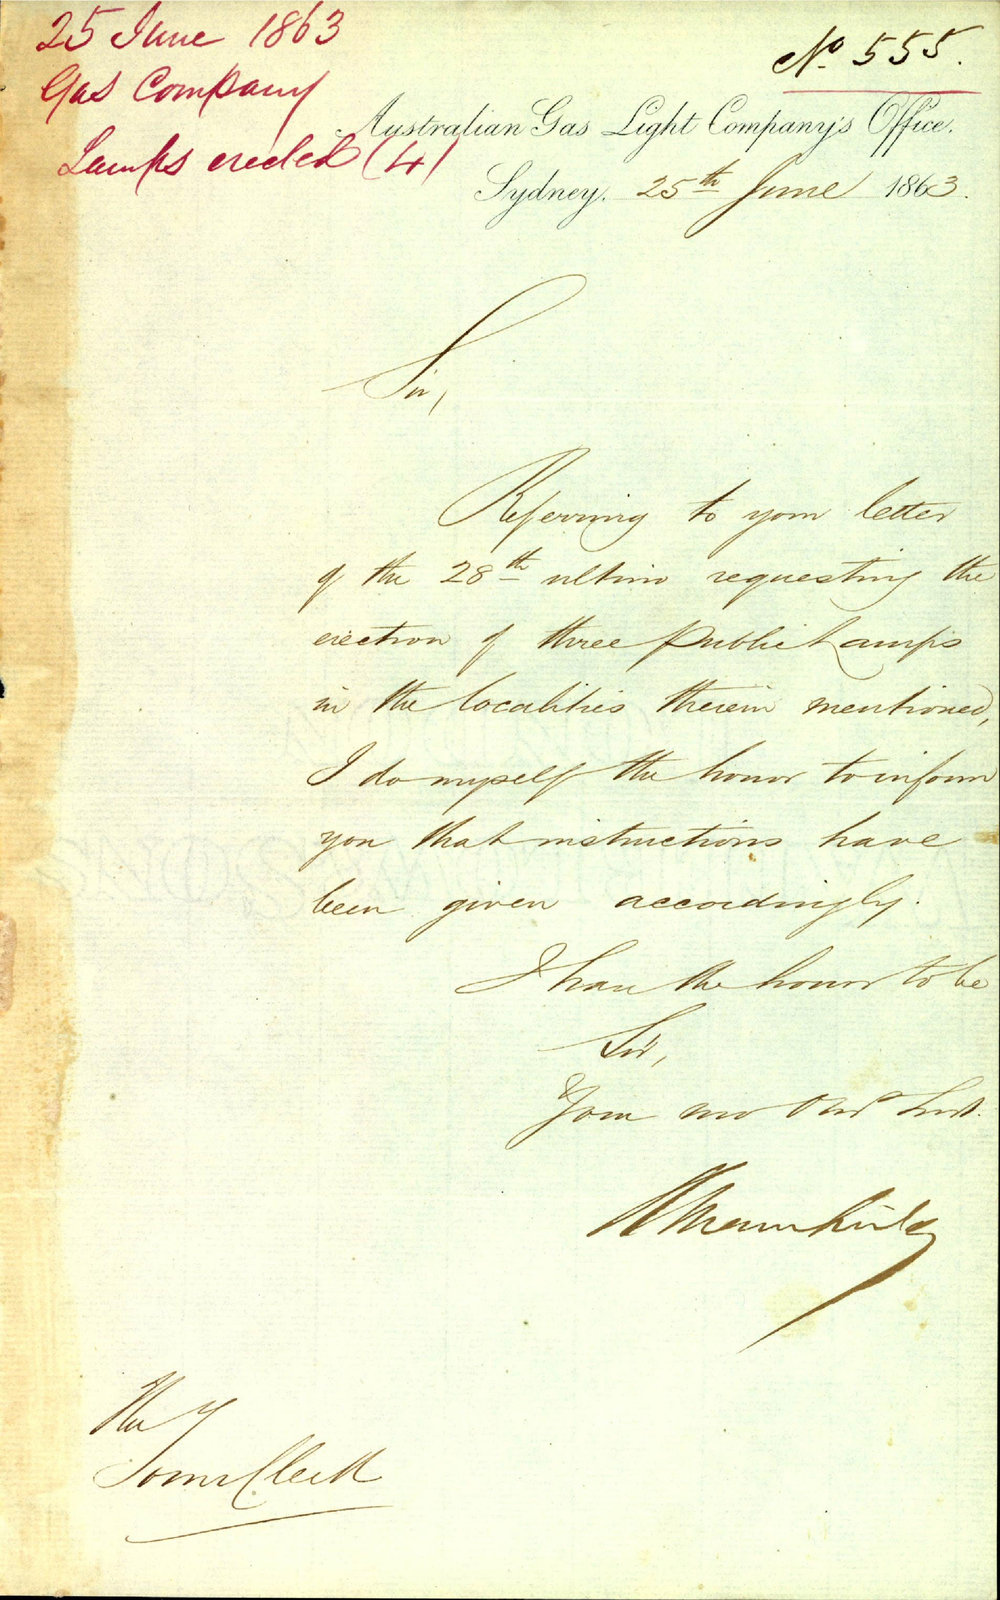 25 June 1863
Gas Company
Lamps erected (4)
No. 555.
Australian Gas Light Company's Office.
Sydney. 25th June 1863.
Sir,
Referring to your letter
of the 28th ultimo requesting the
erection of three Public Lamps
in the localities therein mentioned,
I do myself the honor to inform
you that instructions have
been given accordingly.
I have the honor to be
Sir,
Your mo Obt Servt.
The
Town Clerk